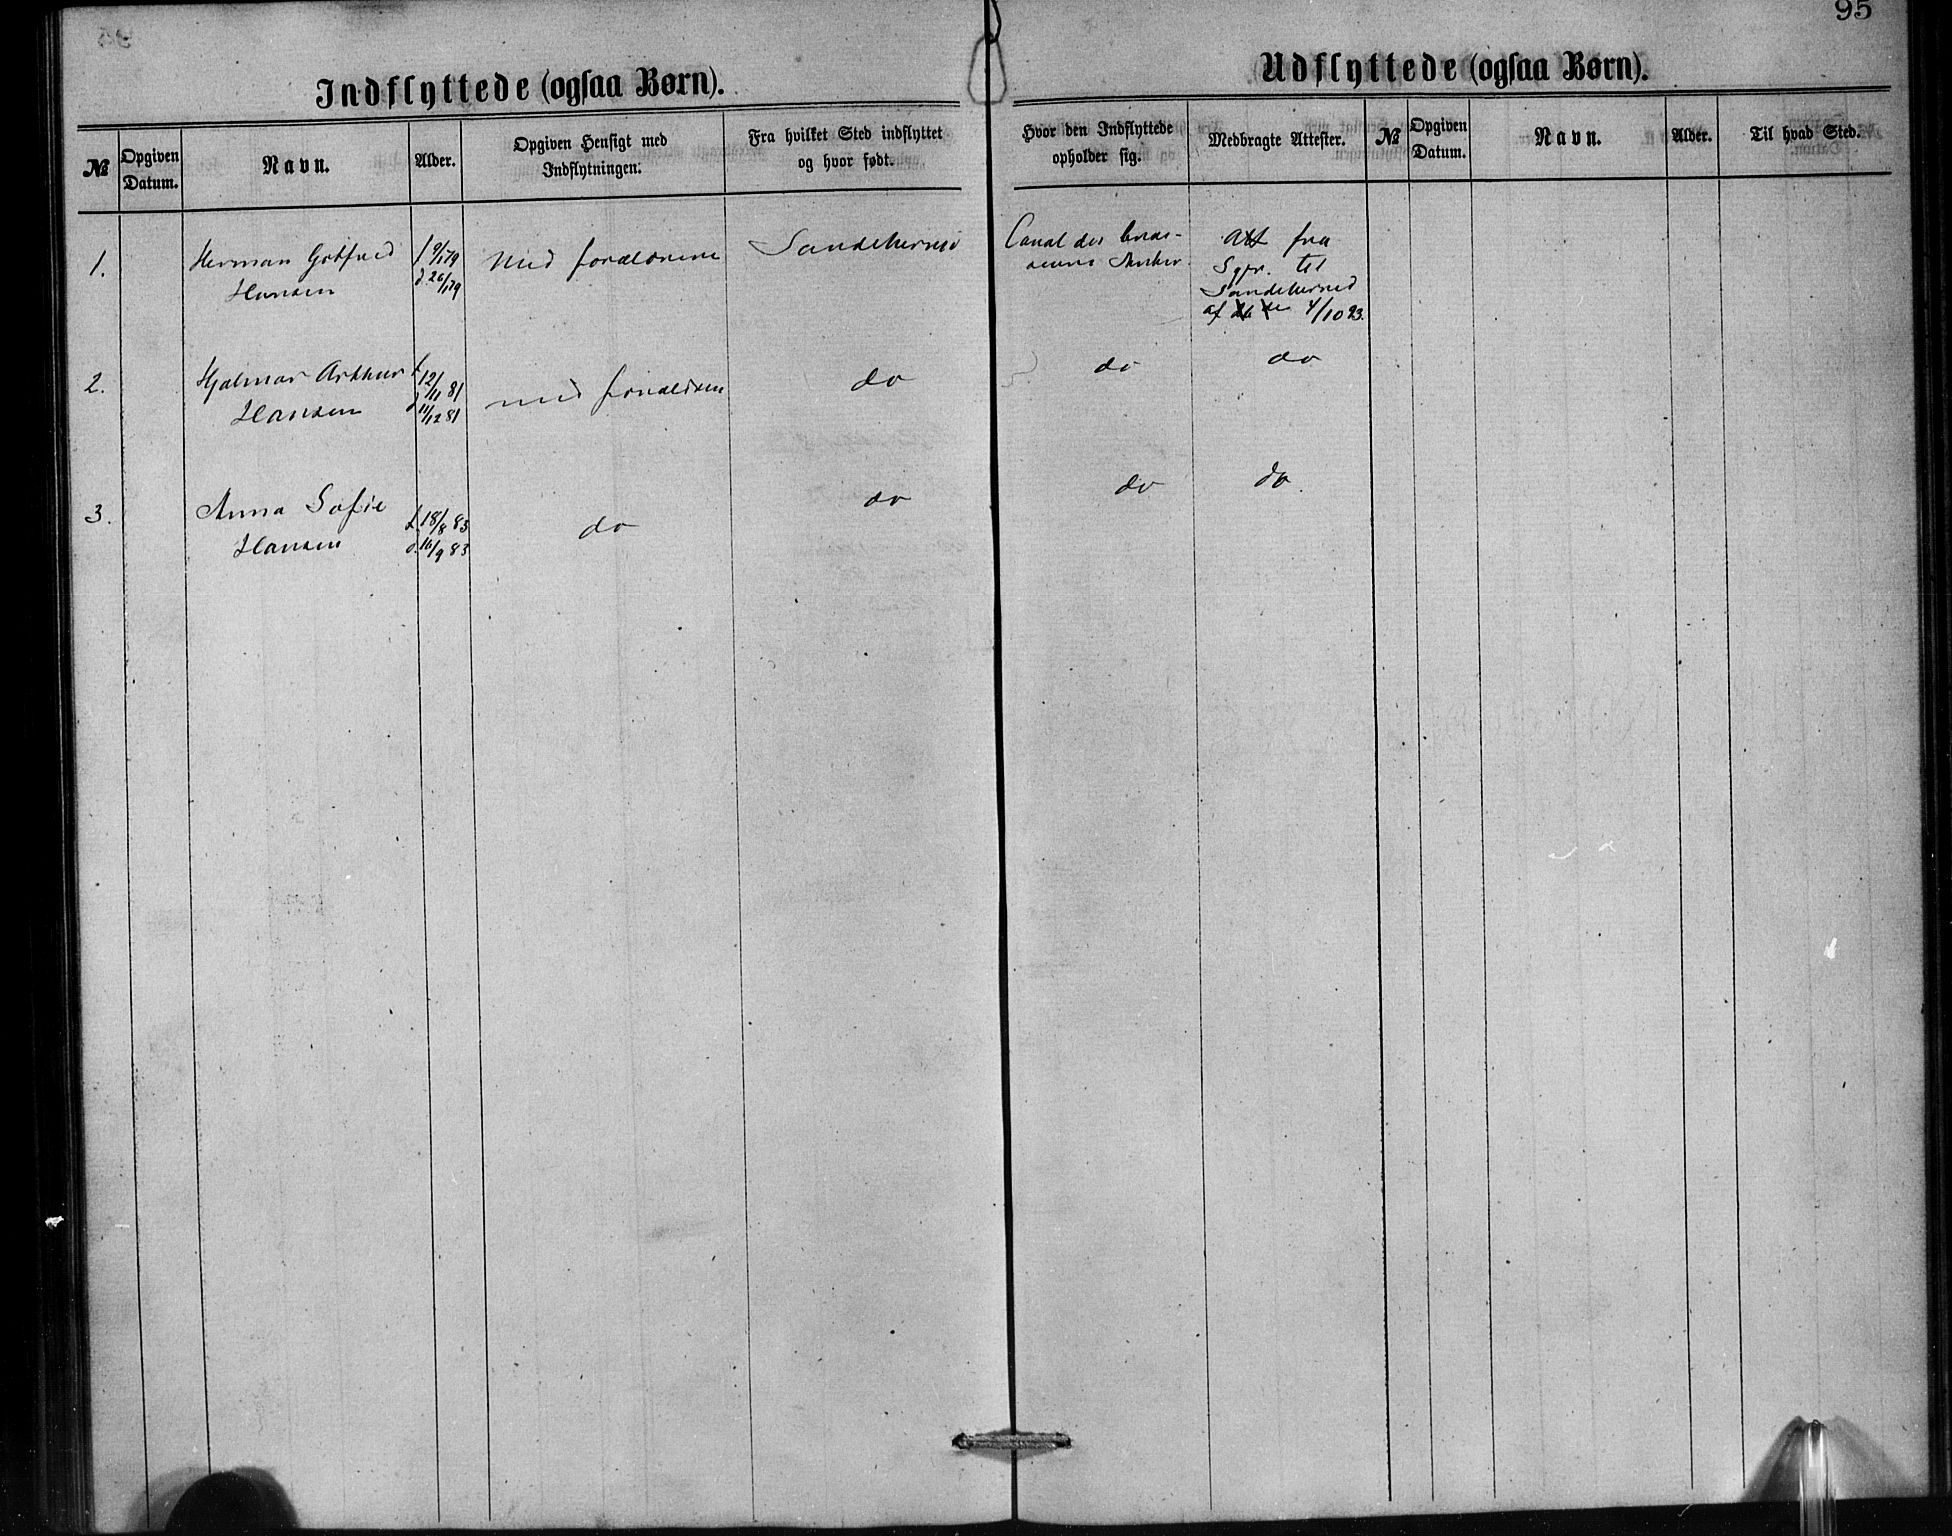 95
Indflyttede (ogsaa Børn).
Udflyttede (ogsaa Børn).
№
Opgiven Datum.
Navn.
Alder.
Opgiven Hensigt med Indflytningen.
Fra hvilket Sted indflyttet og hvor født.
Hvor den Indflyttede opholder sig.
Medbragte Attester.
№
Opgiven Datum.
Navn.
Alder.
Til hvad Sted.
1.
Herman Gotfried
Hansen
Med forældrene
Canal des
Att fra
Sgpr. til
af 4/10 93.
2.
Hjalmar Arthur
Hansen
f 12/11 81
d 11/12 81
med forældren
do
do
do
3.
Anna Sofie
Hansen
f. 18/8 83
d. 16/9 83
do
do
do
do